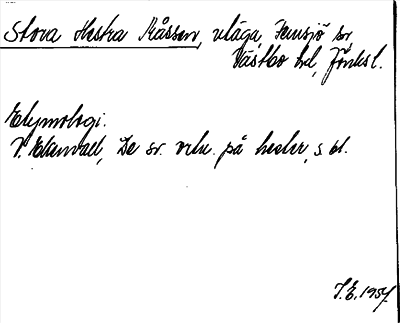 Stora Heska Måssen, utäga, Femsjö sn,
Västbo hd, Jönksl.
Etymologi.
V. Ekenvall, De sv. ortn. på hester, s. 61.
J.E. 1957.